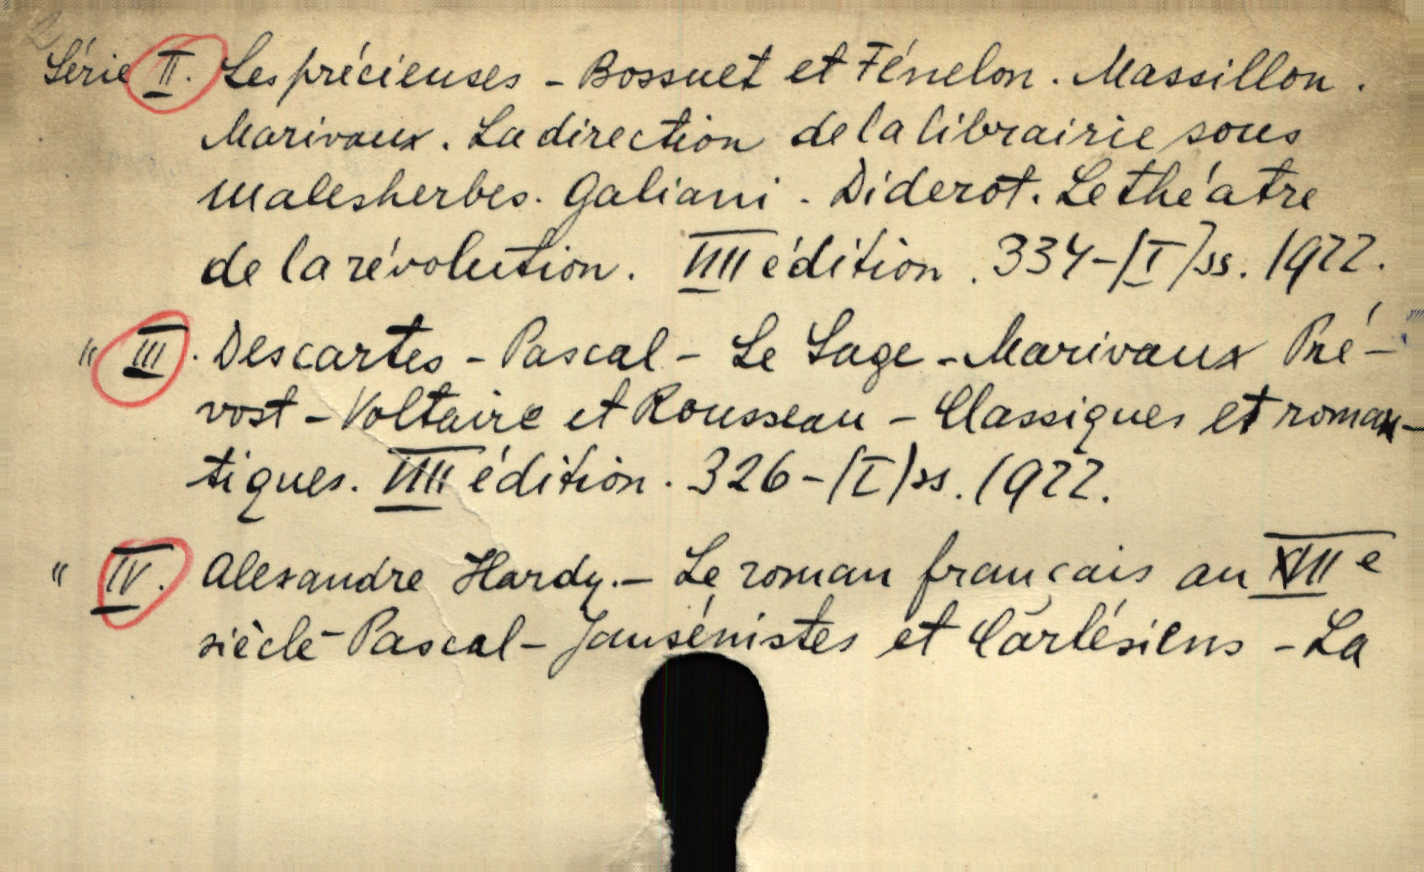 2
Série II. Les précieuses - Bossuet et Fénelon. Massillon.
Marivaux. La direction de la librairie sous
Malesherbes. Galiani. Diderot. Le théatre
de la révolution. VIII édition. 334-[I]ss. 1922.
" III. Descartes - Pascal - Le Sage - Marivaux Pré-
vost - Voltaire et Rousseau - Classiques et roman-
tiques. VIII édition. 326-(I)ss. 1922.
" IV. Alexandre Hardy. - Le roman français au XVII e
siècle - Pascal - Jansénistes et Cartésiens - La